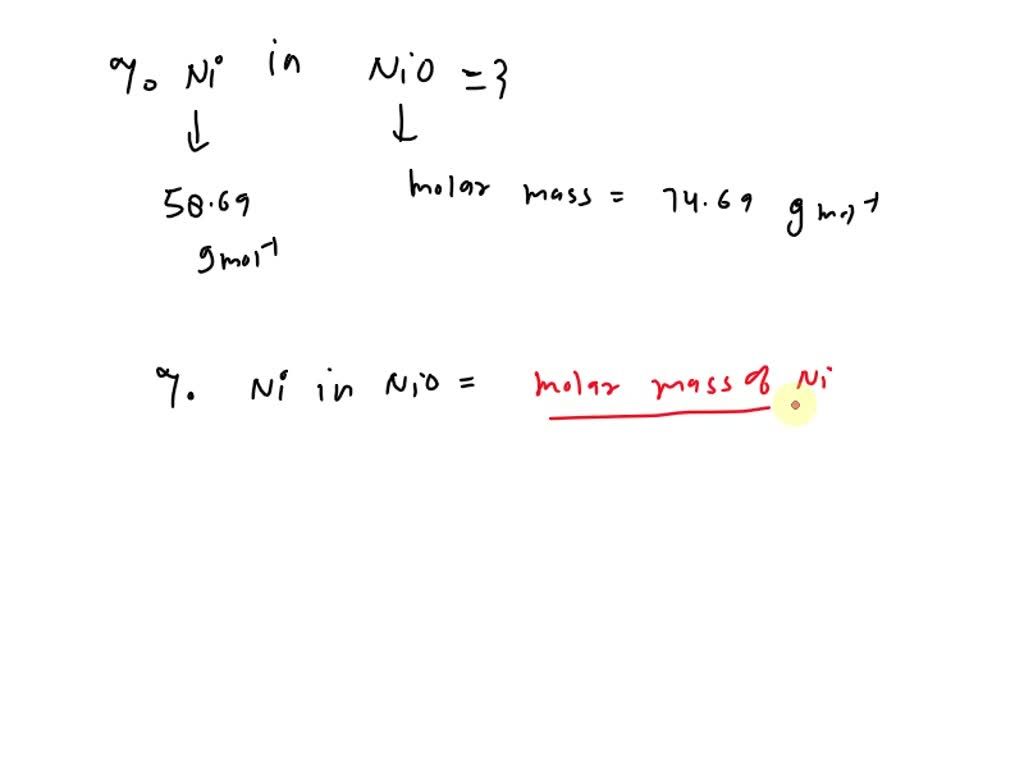 % Ni in NiO = ?
↓ ↓
58.69 molar mass = 74.69 g mol⁻¹
g mol⁻¹
% Ni in NiO = molar mass of Ni